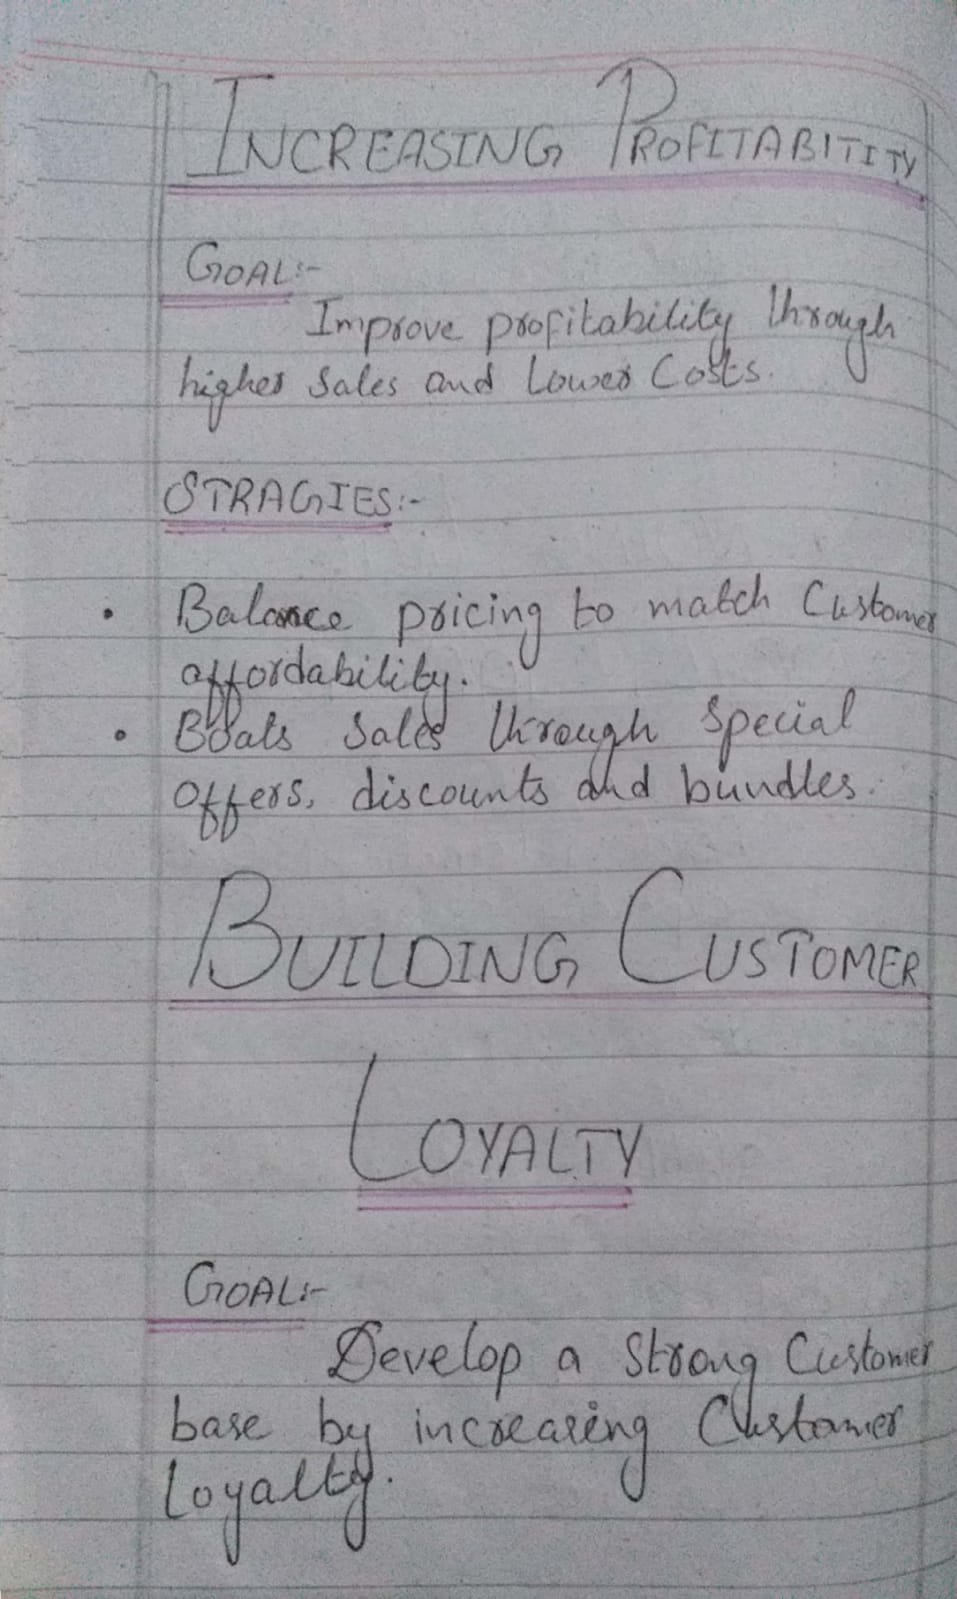 INCREASING PROFITABITITY
GOAL:-
Improve profitability through
higher sales and Lower Costs.
STRAGIES:-
• Balance pricing to match Customer
affordability.
• Boats sales through special
offers, discounts and bundles.
BUILDING CUSTOMER
LOYALTY
GOAL:-
Develop a strong Customer
base by increasing Customer
Loyalty.